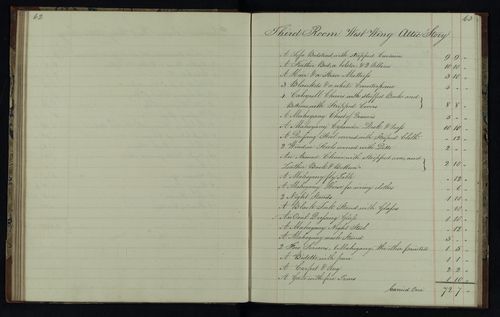 62
63
Third Room West Wing Attic Story
A Tent Bedstead with Stripped Curtains 9 9 -
A Feather Bed, a bolster & 2 Pillows 10 10 -
A Hair & a Straw Mattress 3 10 -
3 Blankets & a white Counterpane 5 - -
4 Cabriolle Chairs with Stuffed Backs and
Bottoms with Stripped Covers 8 8 -
A Mahogany Chest of Drawers 5 - -
A Mahogany Desk & 10 10 -
A Dressing Stool covered with Stripped Cloth - 12 -
2 Window Stools covered with Ditto 2 - -
An Armed Chair with Stripped cover, and
Leather Back & Bottom 2 10 -
A Mahogany fly Table - 12 -
A Mahogany Horse for airing clothes - 6 -
2 Night Stands 1 10 -
A Stand with Glasses - 10 -
An Oval Dressing Glass 1 10 -
A Mahogany Night Stool - 12 -
A Mahogany wash Stand 5 - -
2 Fire Screens, 1 Mahogany, the other painted 1 5 -
A with pan 1 1 -
A Carpet & Rug 2 2 -
A Grate with fire Irons 1 10 -
Carried Over 72 7 -